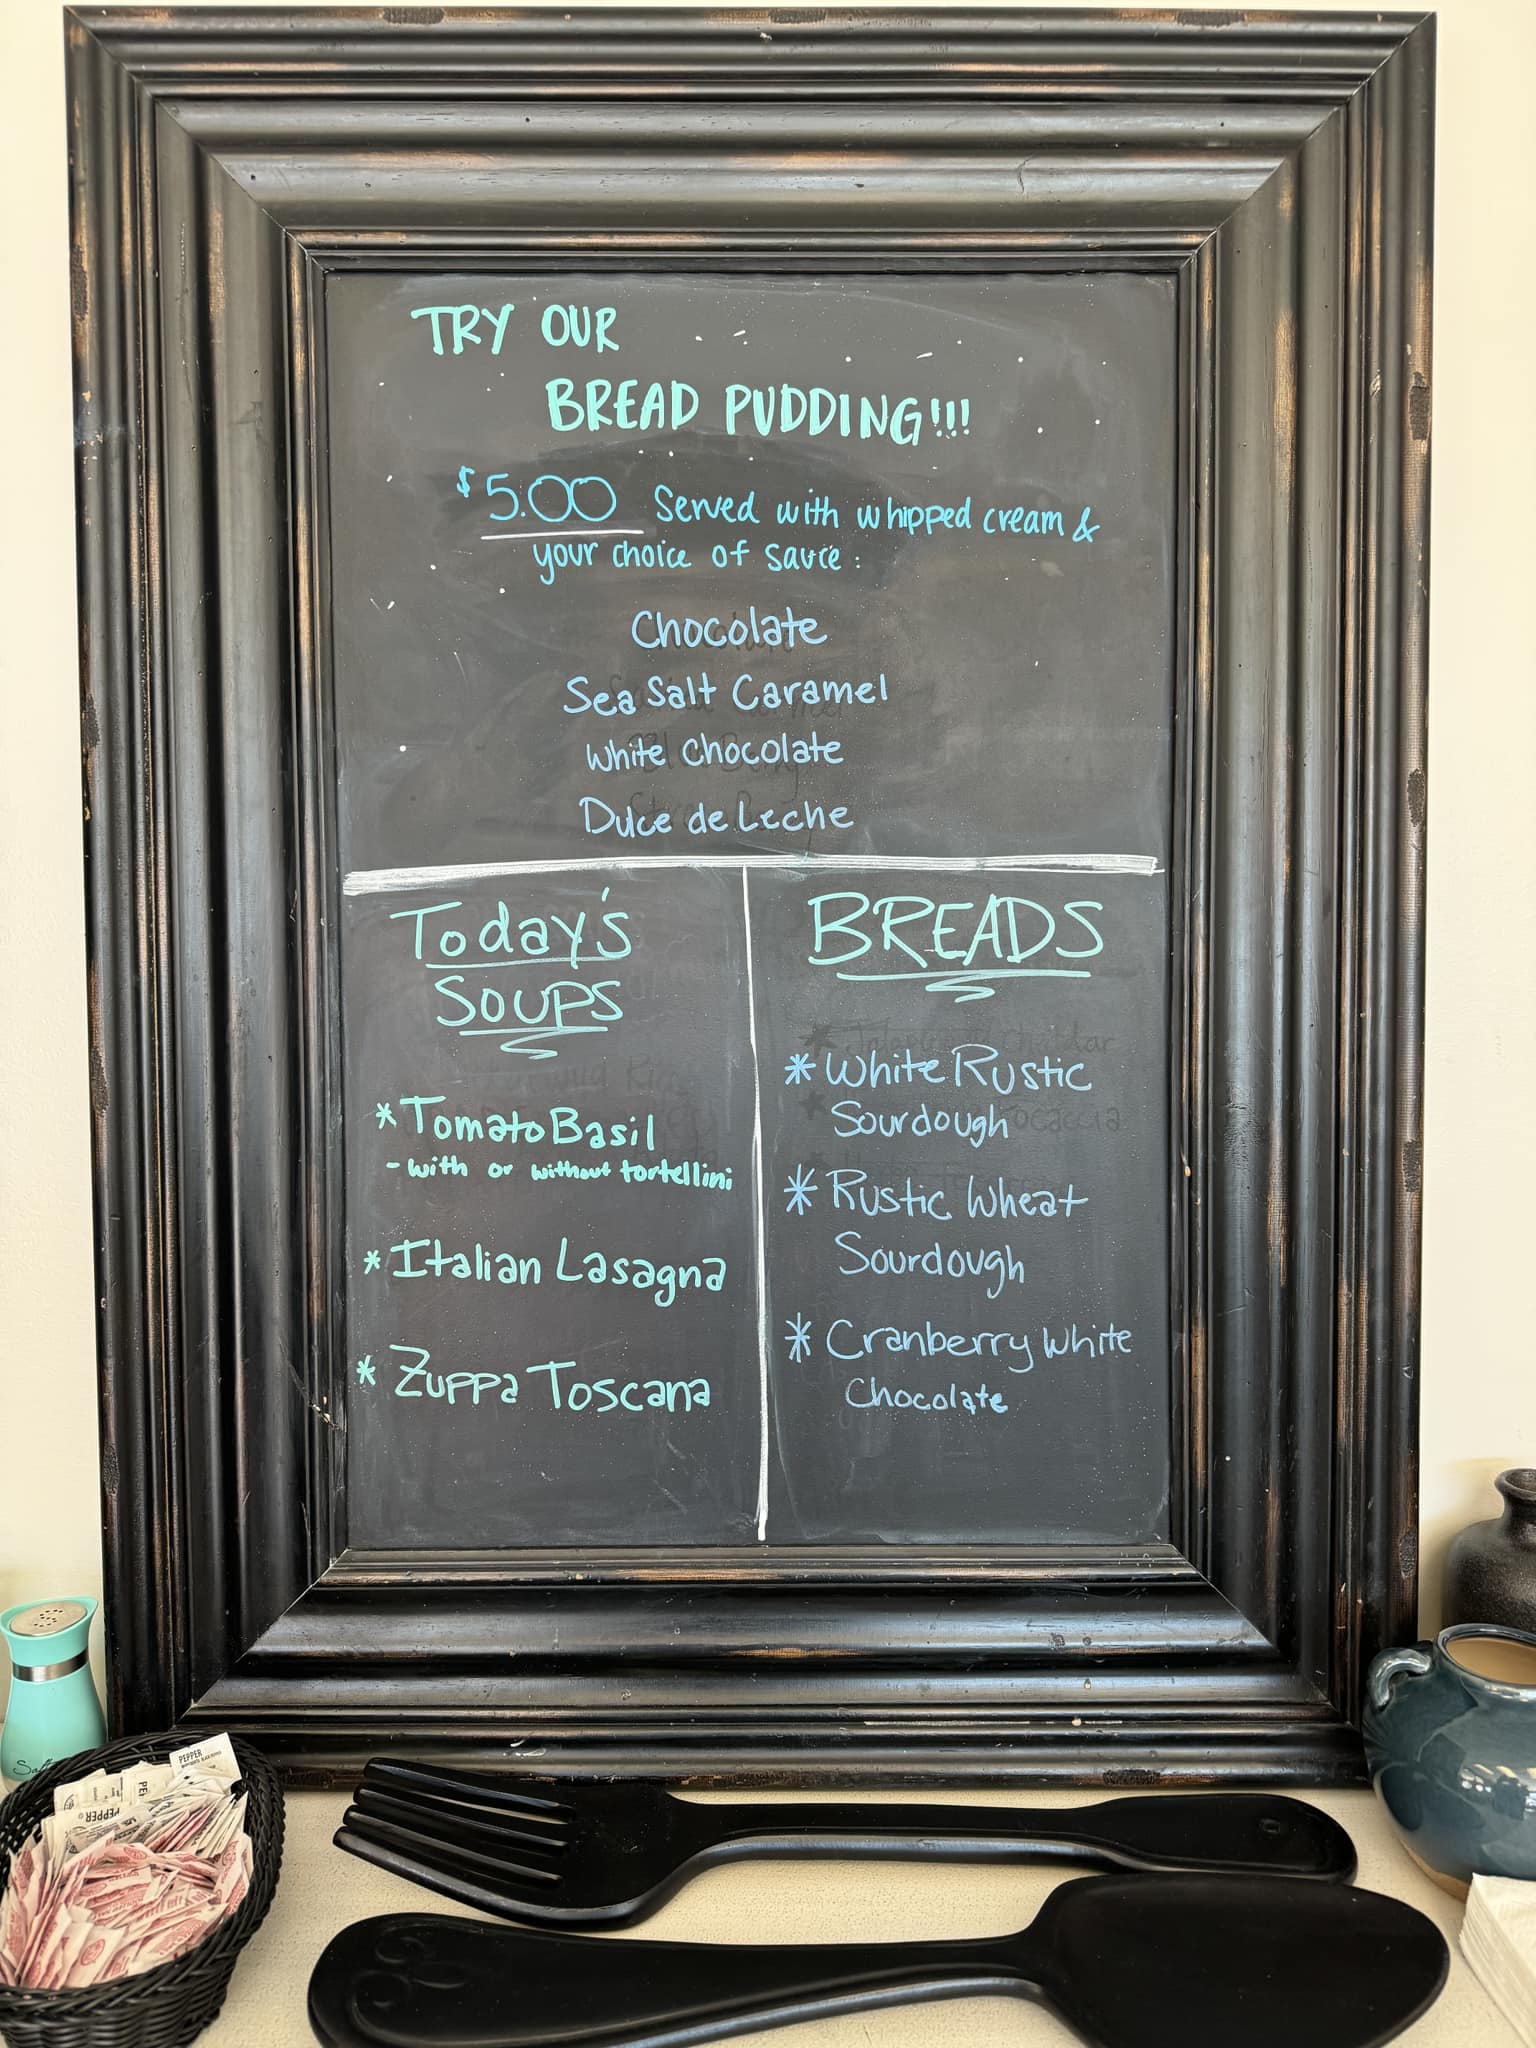 TRY OUR
BREAD PUDDING!!!
$5.00 Served with whipped cream &
your choice of sauce:
Chocolate
Sea Salt Caramel
White Chocolate
Dulce de Leche
Today's
SOUPS
* Tomato Basil
- with or without tortellini
* Italian Lasagna
* Zuppa Toscana
BREADS
* White Rustic
Sourdough
* Rustic Wheat
Sourdough
* Cranberry White
Chocolate
Salt
PEPPER
PEPPER